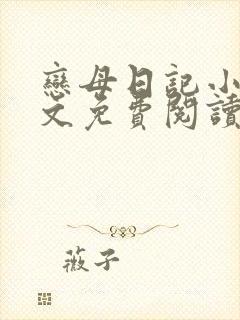 戀母日記小
文免費閱讀
薇子